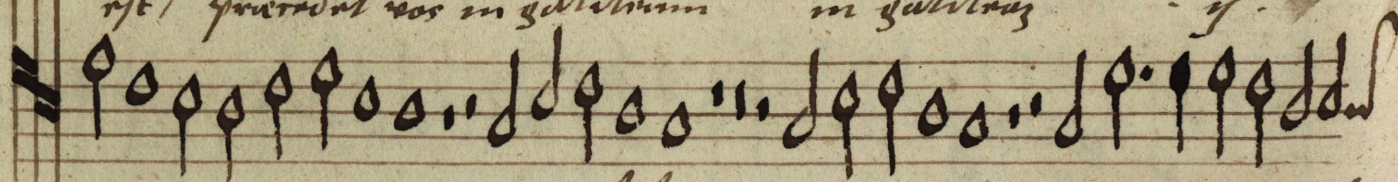 est / præcedet vos in galileam in galileam ij.